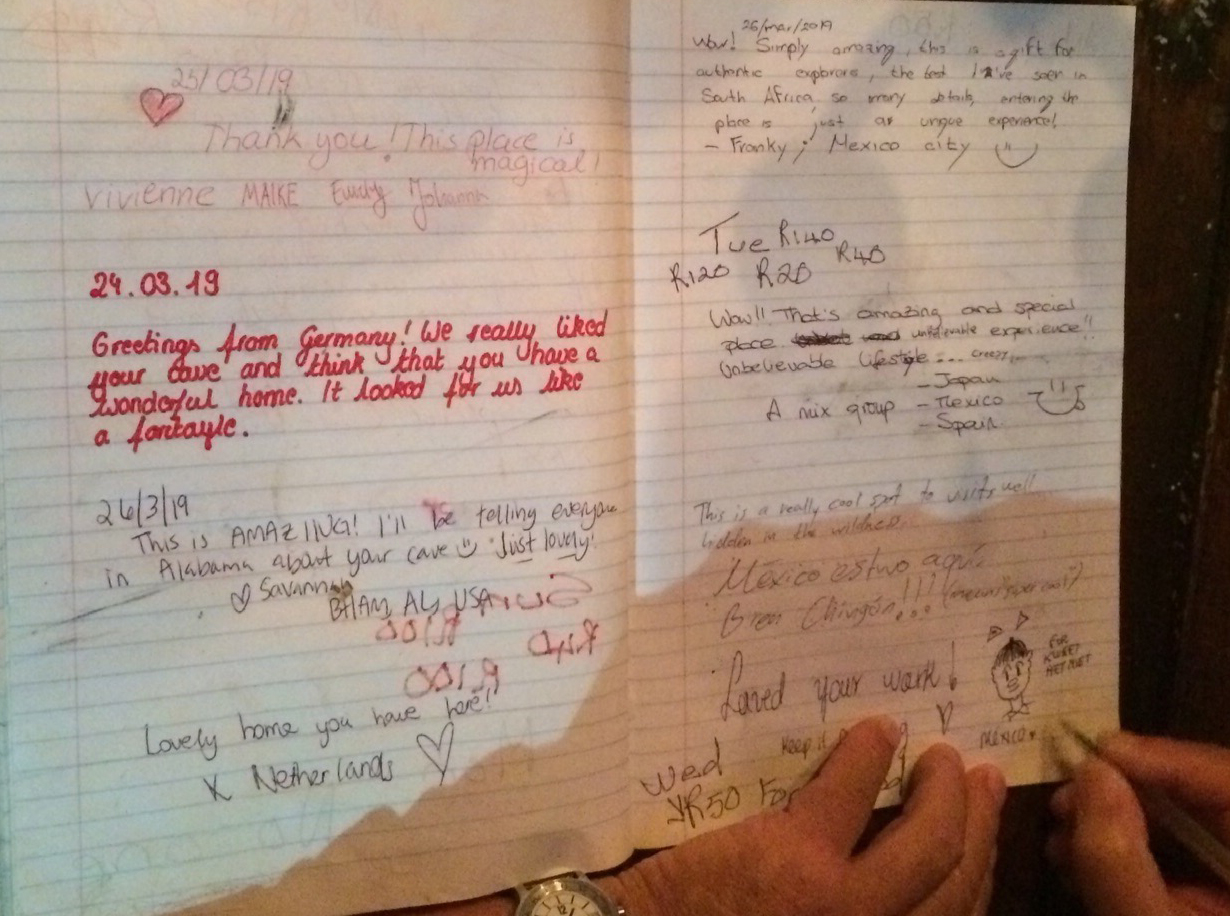 25/03/19
Thank you! This place is
magical!
Vivienne MAIKE Emily Johanna
24.03.19
Greetings from Germany! We really liked
your cave and think that you have a
wonderful home. It looked for us like
a fairtayle.
26/3/19
This is AMAZING! I'll be telling everyone
in Alabama about your cave Just lovely!
Savannah
BHAM, AL, USA
Lovely home you have here!!
X Netherlands
26/mar/2019
Wow! Simply amazing, this is a gift for
authentic explorers, the best I've seen in
South Africa, so many details, entering the
place is just as unique experience!
- Franky, Mexico city
Tue R140
R40
R120 R20
Wow!! That's amazing and special
place unbelievable experience!!
Unbelievable lifestyle...
- Japan
A mix group - Mexico
- Spain
This is a really cool spot to visit well
hidden in the
México estuvo aquí.
Bien Chingón!!!
Loved your work!
FOR
Keep it
MÉXICO
Wed
R50 For